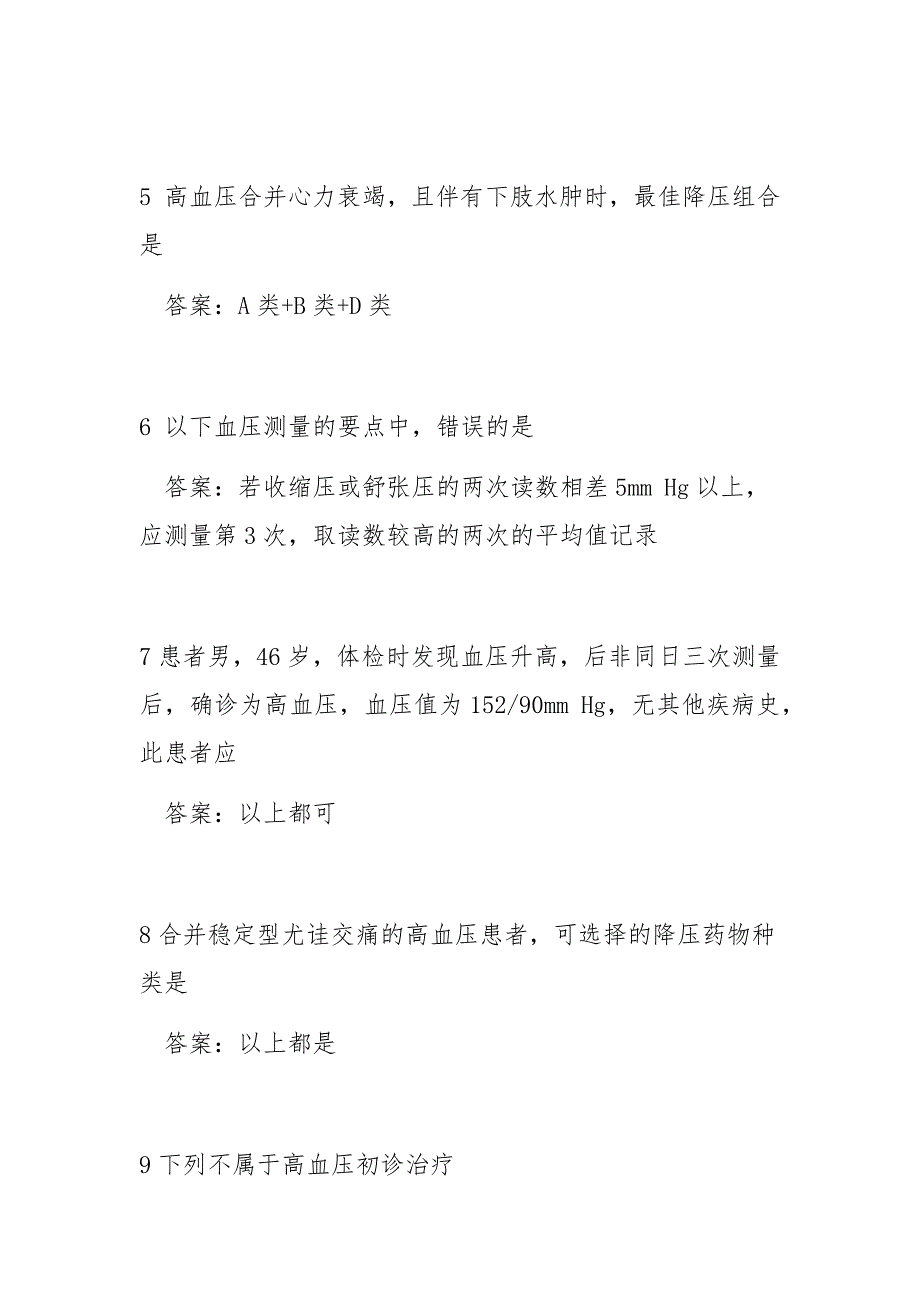 5 高血压合并心力衰竭，且伴有下肢水肿时，最佳降压组合
是
答案：A 类+B 类+D 类
6 以下血压测量的要点中，错误的是
答案：若收缩压或舒张压的两次读数相差 5mm Hg 以上，
应测量第 3 次，取读数较高的两次的平均值记录
7 患者男，46 岁，体检时发现血压升高，后非同日三次测量
后，确诊为高血压，血压值为 152/90mm Hg，无其他疾病史，
此患者应
答案：以上都可
8 合并稳定型尤诖交痛的高血压患者，可选择的降压药物种
类是
答案：以上都是
9 下列不属于高血压初诊治疗